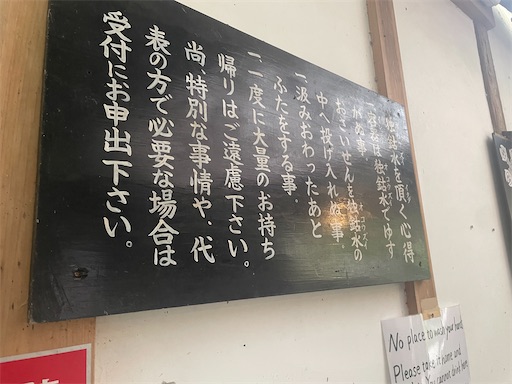 独鈷水を頂く心得
一、容器は独鈷水でゆす
がぬ事.
おさいせんを独鈷水の
中へ投げ入れぬ事.
一、汲みおわったあと
ふたをする事.
一、一度に大量のお持ち
帰りはご遠慮下さい。
尚、特別な事情や、代
表の方で必要な場合は
受付にお申出下さい。
No place to wash your hand.
Please take it home and
cannot drink here